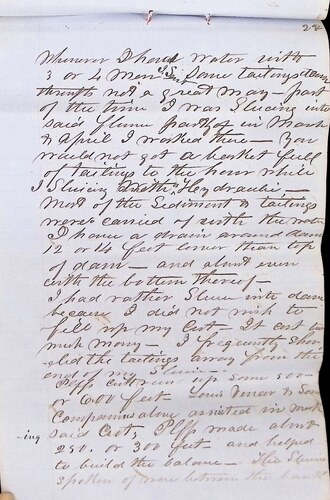 22
Whenever I had water with
3 or 4 men I sent some tailings down
through not a great way - part
of the time I was Sluicing into
said flume part of in March
& April I worked there - You
would not get a basket full
of tailings to the hour while
I Sluicing with Hydraulic -
Most of the Sediment & tailings
were carried off with the water
I have a drain around dam
12 or 14 feet lower than top
of dam - and about even
with the bottom thereof -
I had rather Sluice into dam
because I did not wish to
fill up my Cut - It cost too
much money - I frequently shov-
eled the tailings away from the
end of my Sluice -
Plffs cut run up some 500
or 600 feet
Companies alone assisted in mak
-ing said Cut, Plffs made about
250. or 300 feet and helped
to build the balance - The Sluice
spoken of